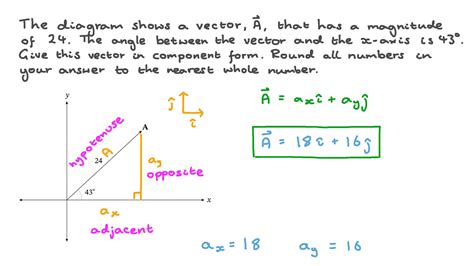 The diagram shows a vector, A⃗, that has a magnitude
of 24. The angle between the vector and the x-axis is 43°.
Give this vector in component form. Round all numbers in
your answer to the nearest whole number.
y
ĵ
î
A⃗ = aₓî + a_yĵ
hypotenuse
A
A
24
a_y
opposite
A⃗ = 18î + 16ĵ
43°
x
aₓ
adjacent
aₓ = 18 a_y = 16